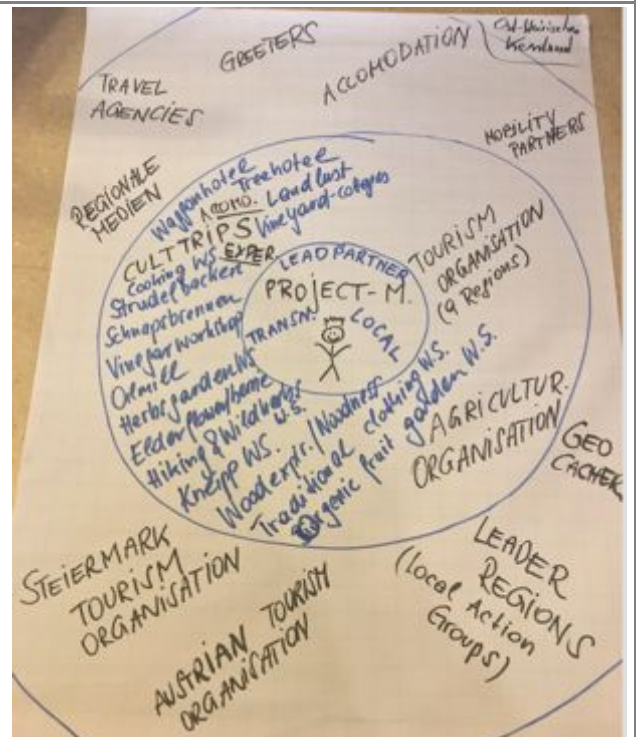 GREETERS
ACCOMODATION
Kernland
TRAVEL
AGENCIES
MOBILITY
PARTNERS
REGIONALE
MEDIEN
Waggonhotel
Treehotel
ACCOMO. Landlust
Vineyard-cotages
CULTTRIPS
EXPER.
Cooking WS
Strudelbacken
Schnapsbrennen
Vinegar Workshop
Oilmill
Herbsgarden WS
Elderflower/berrie
Hiking & Wildherbs
W.S.
Kneipp WS
Woodexpr./Woodness
Traditional clothing WS.
Orgenic fruit garden W.S.
LEADPARTNER
PROJECT-M.
TRANSN.
LOCAL
TOURISM
ORGANISATION
(9 Regions)
AGRICULTUR.
ORGANISATION
GEO
CACHER
STEIERMARK
TOURISM
ORGANISATION
AUSTRIAN TOURISM
ORGANISATION
LEADER
REGIONS
(Local Action
Groups)